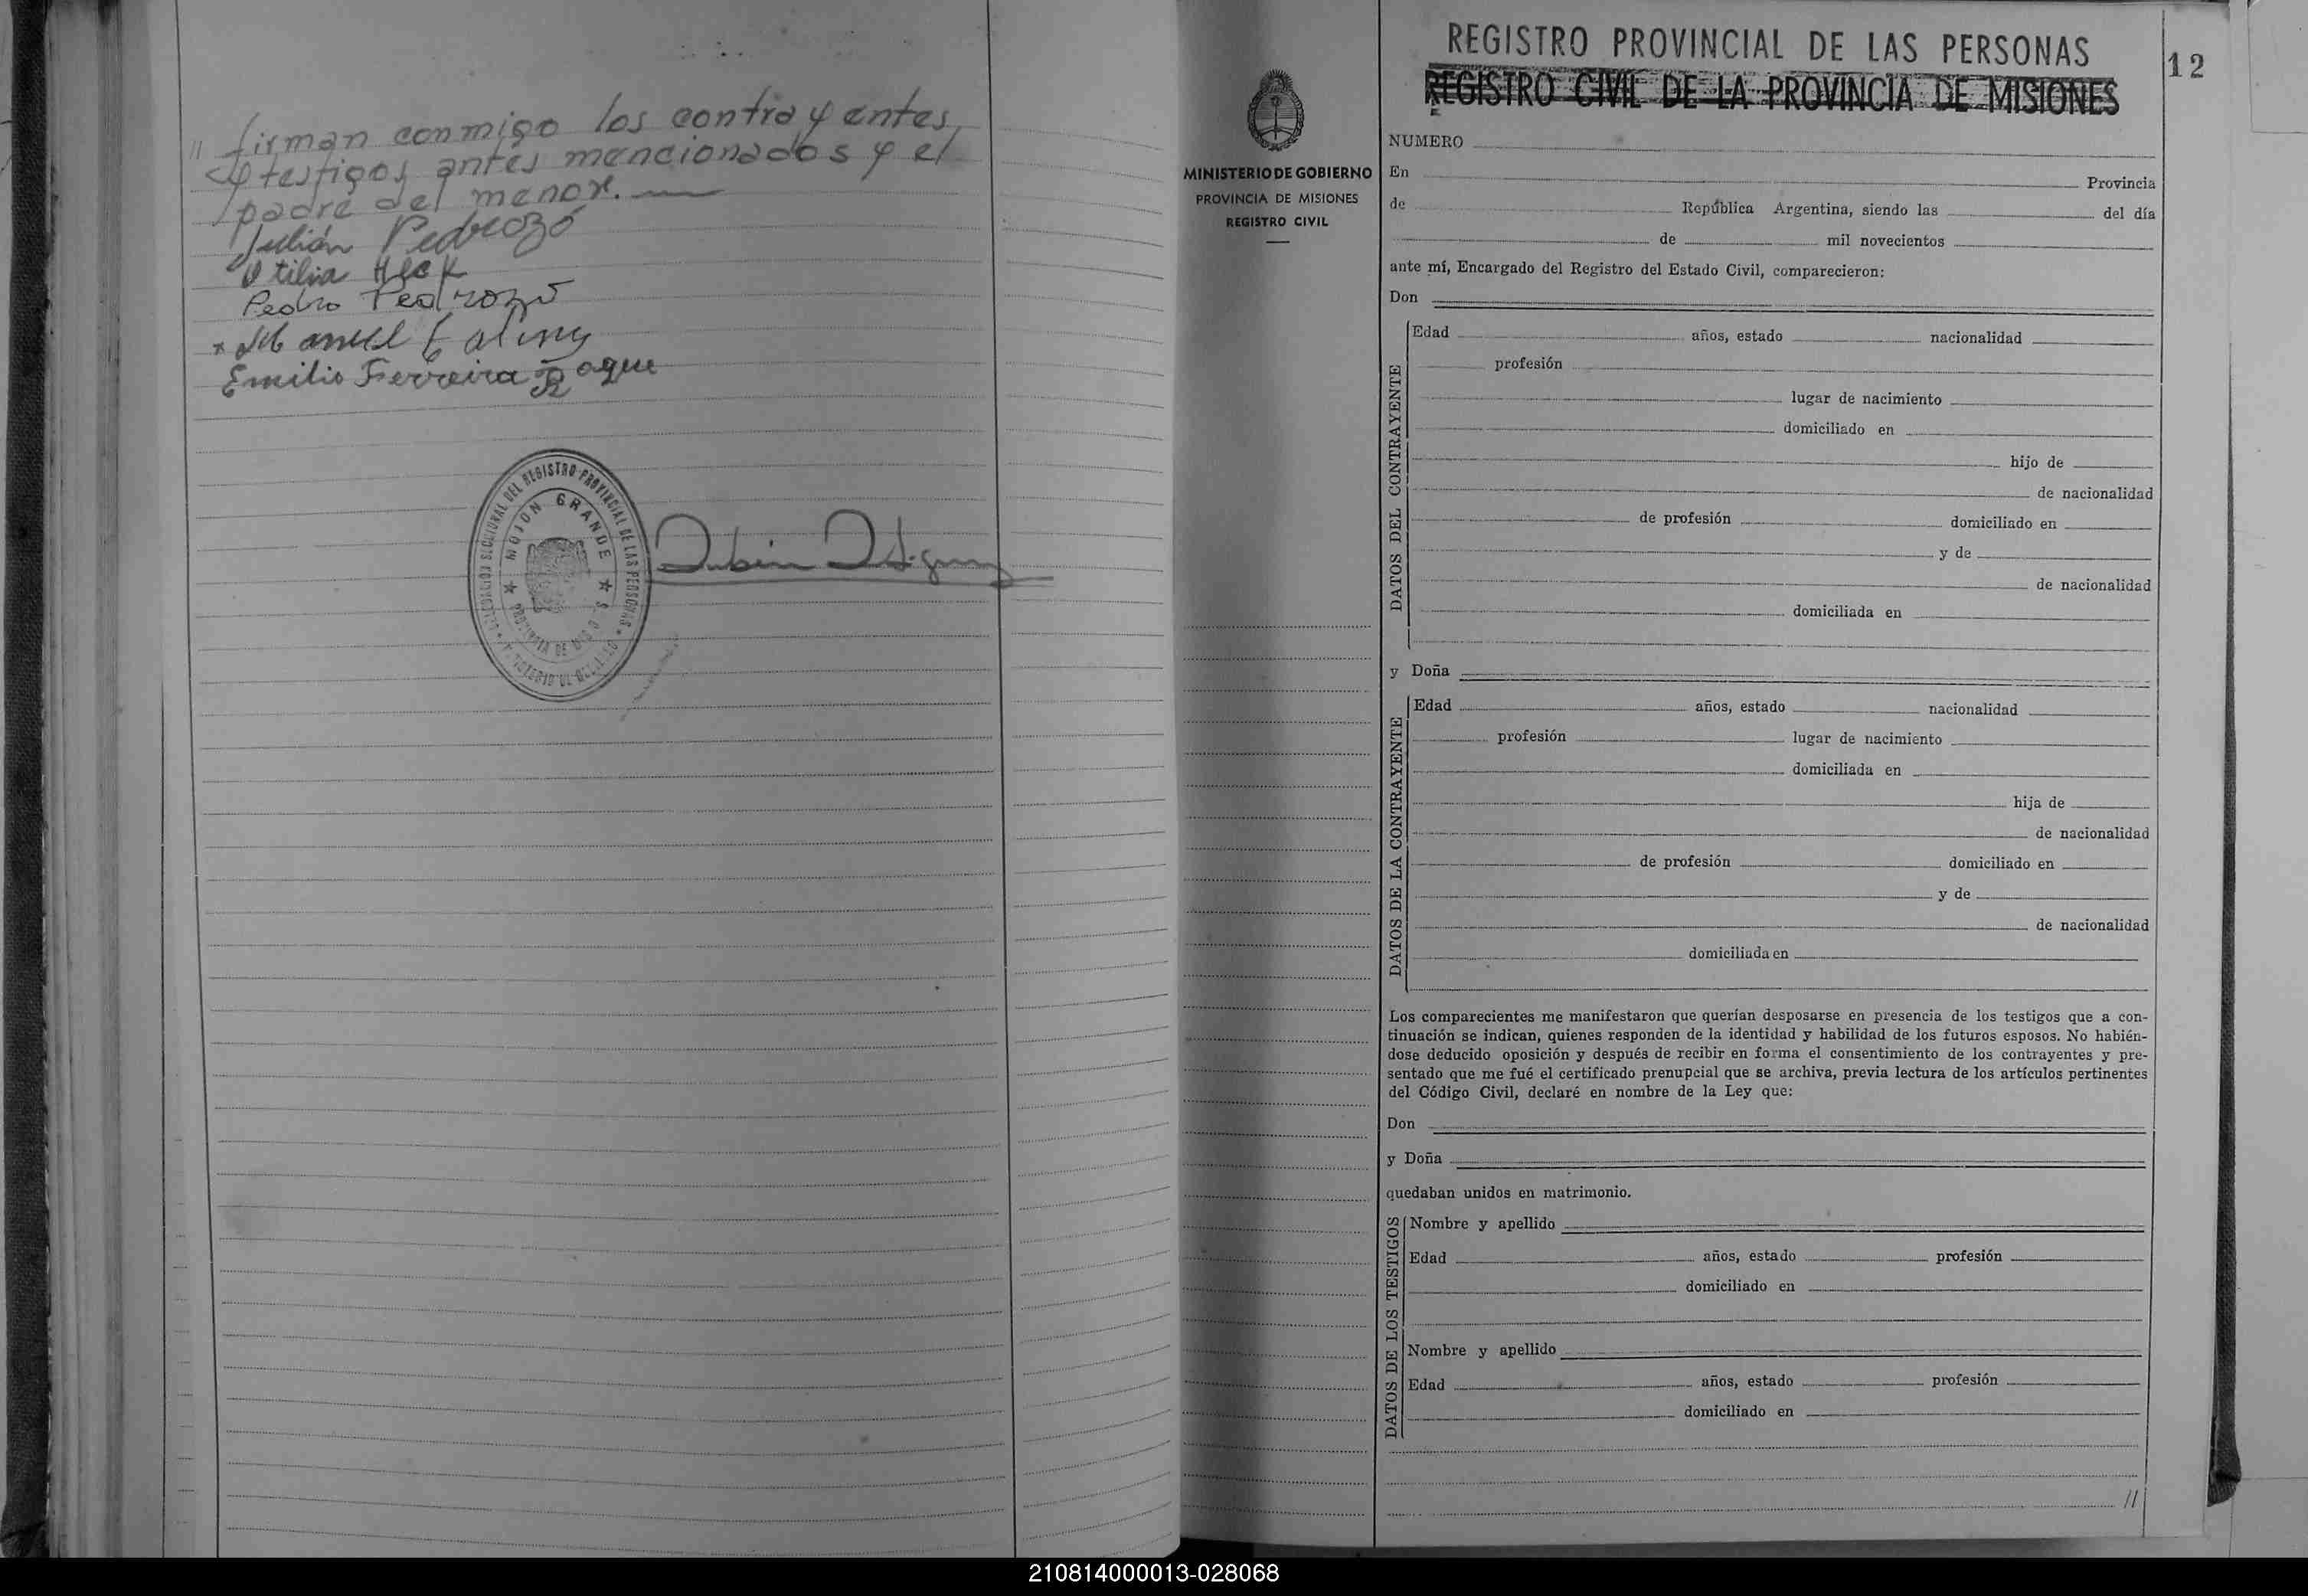 // firman conmigo los contrayentes,
y testigos antes mencionados y el
padre del menor.
Julián Pedrozo
Otilia Heck
Pedro Pedrozo
Emilio Ferreira Roque
DEL REGISTRO PROVINCIAL DE LAS PERSONAS
MOJON GRANDE
MINISTERIO DE GOBIERNO
PROVINCIA DE MISIONES
REGISTRO CIVIL
REGISTRO PROVINCIAL DE LAS PERSONAS
12
REGISTRO CIVIL DE LA PROVINCIA DE MISIONES
NUMERO
En Provincia
de República Argentina, siendo las del día
de mil novecientos
ante mí, Encargado del Registro del Estado Civil, comparecieron:
Don
DATOS DEL CONTRAYENTE
Edad años, estado nacionalidad
profesión
lugar de nacimiento
domiciliado en
hijo de
de nacionalidad
de profesión domiciliado en
y de
de nacionalidad
domiciliada en
y Doña
DATOS DE LA CONTRAYENTE
Edad años, estado nacionalidad
profesión lugar de nacimiento
domiciliada en
hija de
de nacionalidad
de profesión domiciliado en
y de
de nacionalidad
domiciliada en
Los comparecientes me manifestaron que querían desposarse en presencia de los testigos que a con-
tinuación se indican, quienes responden de la identidad y habilidad de los futuros esposos. No habién-
dose deducido oposición y después de recibir en forma el consentimiento de los contrayentes y pre-
sentado que me fué el certificado prenupcial que se archiva, previa lectura de los artículos pertinentes
del Código Civil, declaré en nombre de la Ley que:
Don
y Doña
quedaban unidos en matrimonio.
DATOS DE LOS TESTIGOS
Nombre y apellido
Edad años, estado profesión
domiciliado en
Nombre y apellido
Edad años, estado profesión
domiciliado en
//
210814000013-028068